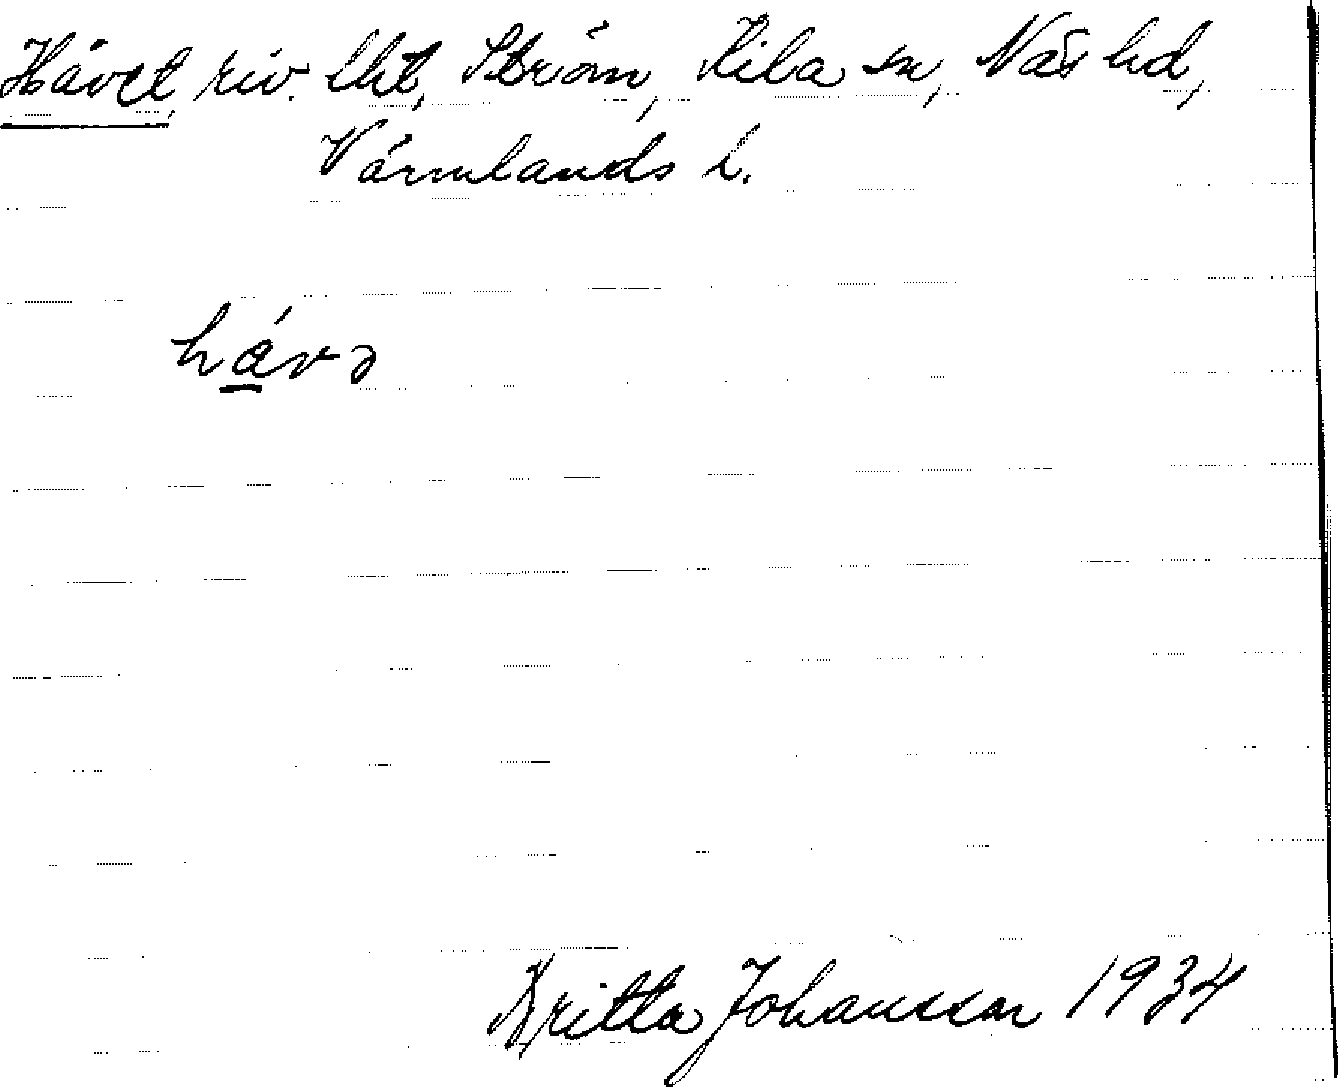 Hávet, riv. lht, Ström, Kila sn, Näs hd,
Värmlands l.
hávə
Britta Johansson 1934